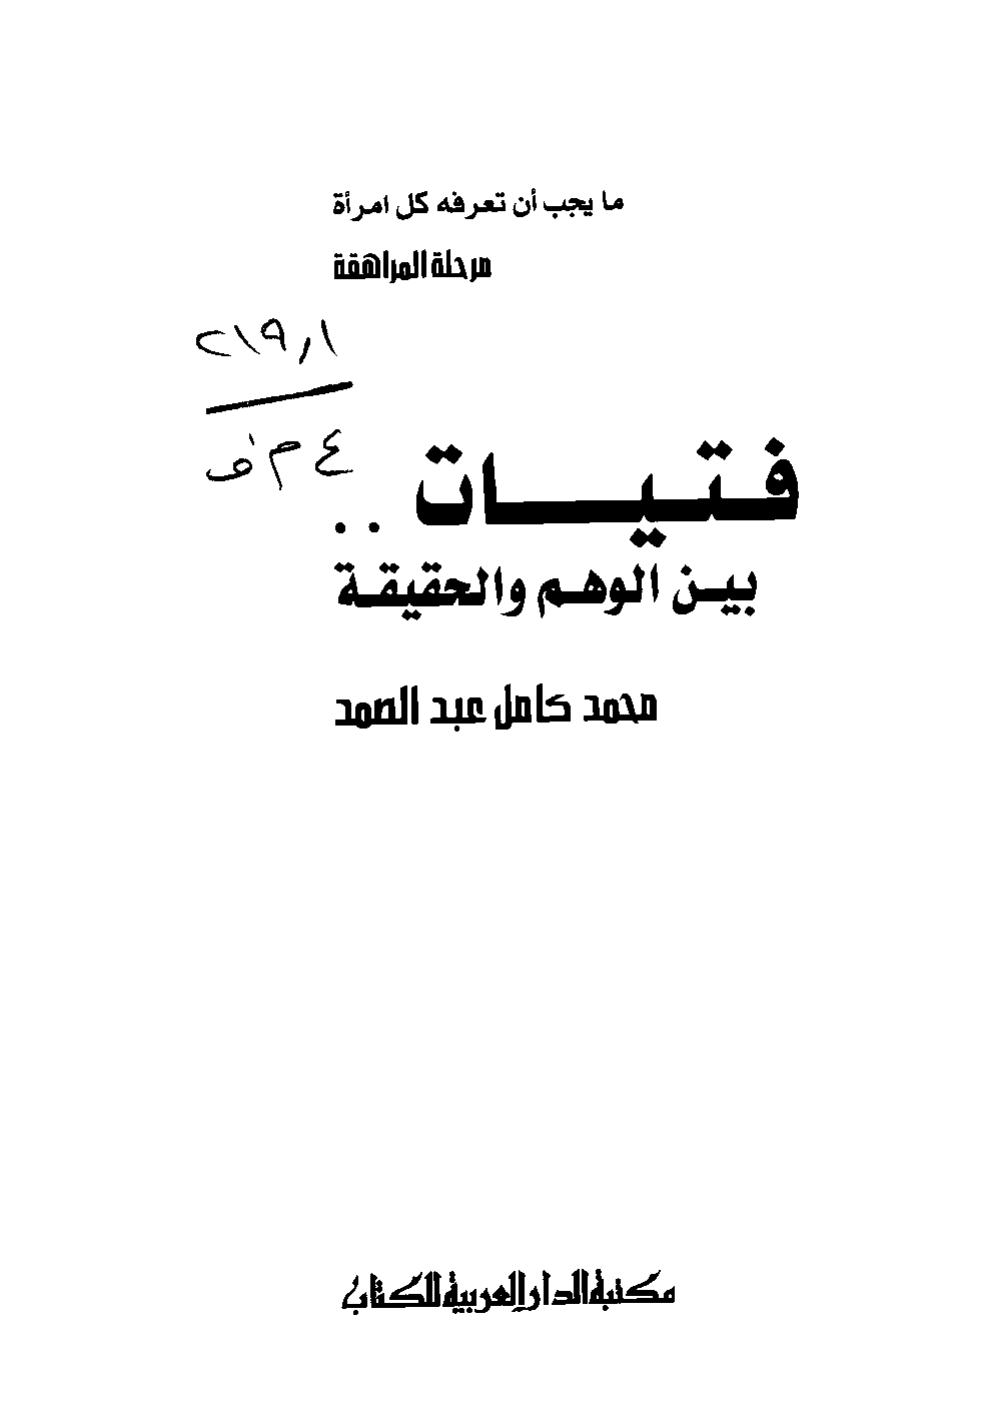 ما يجب أن تعرفه كل امرأة
مرحلة المراهقة
٢١٩,١
ع م ف
فتيات ..
بين الوهم والحقيقة
محمد كامل عبد الصمد
مكتبة الدار العربية للكتاب